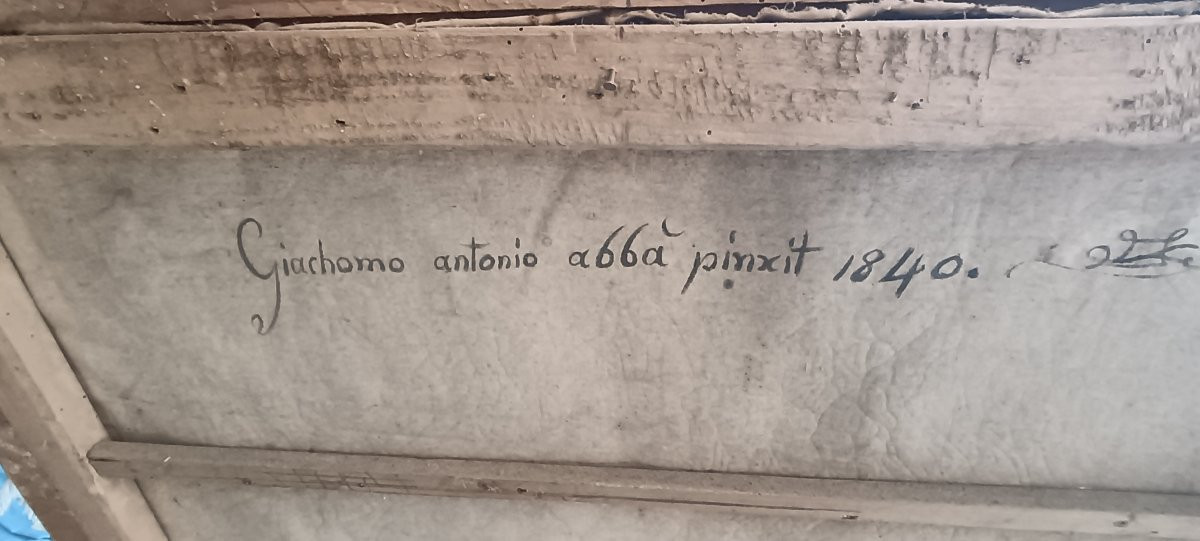 Giachomo antonio abbà pinxit 1840.